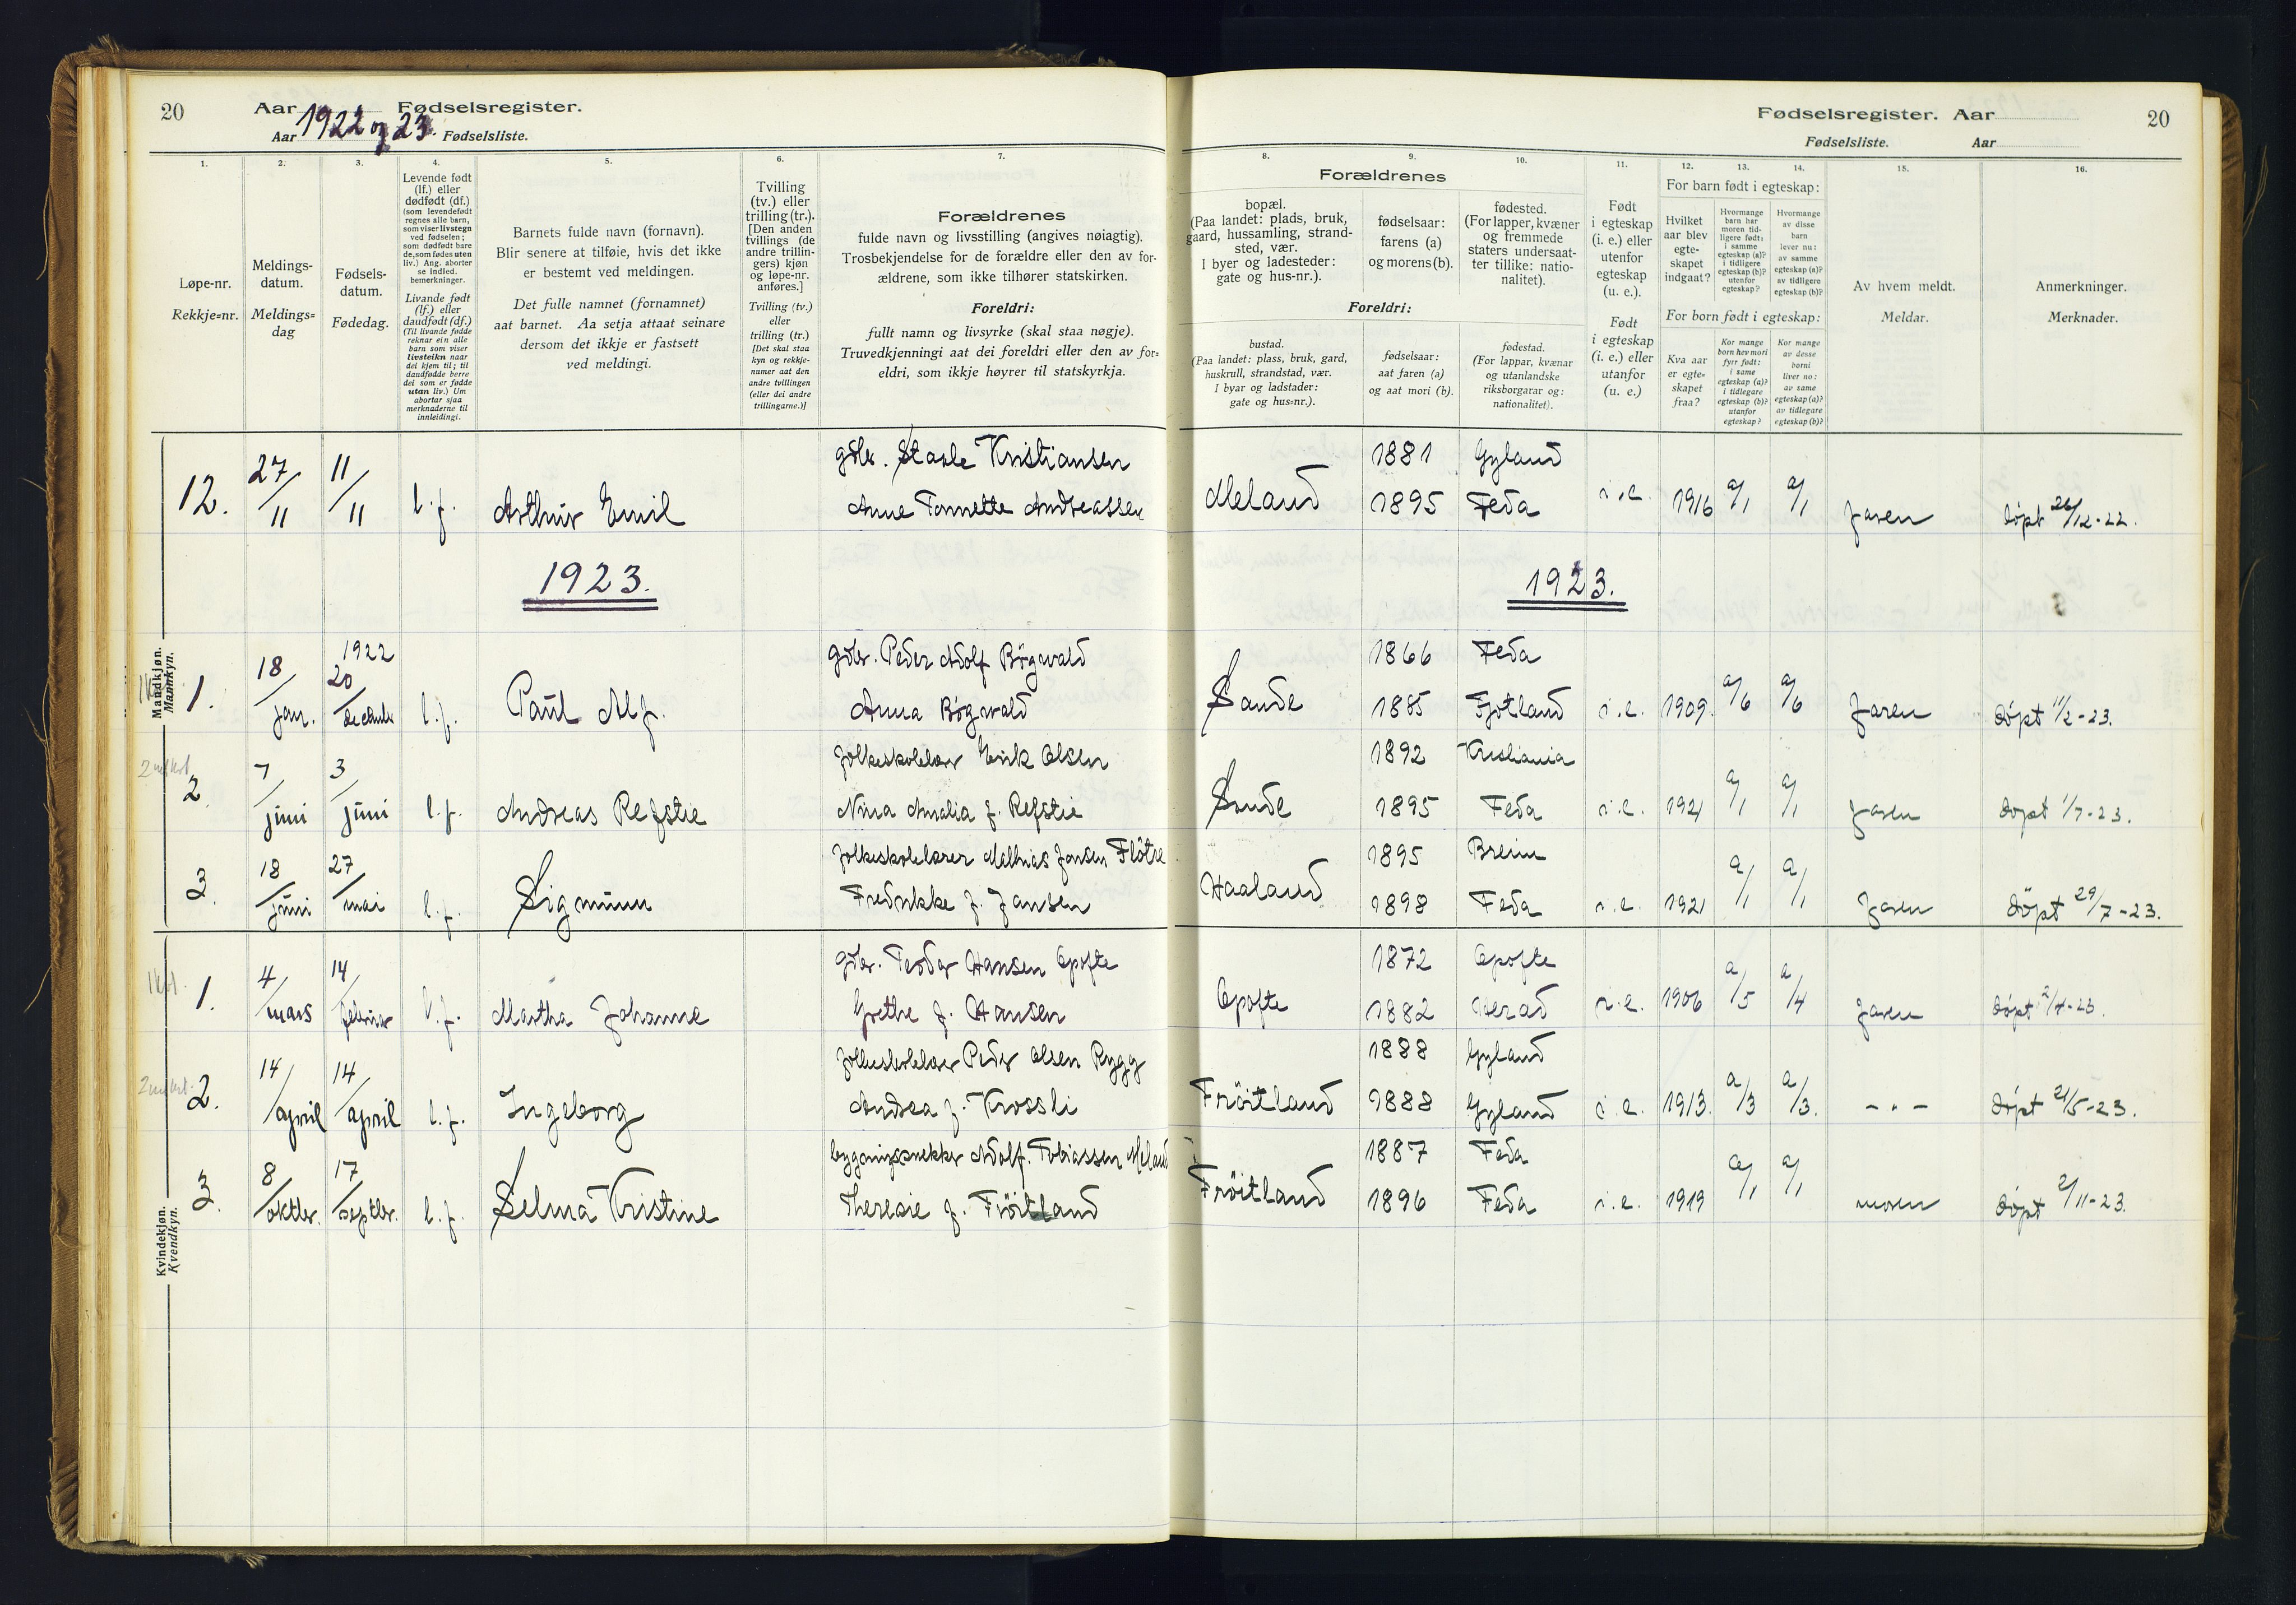 20 Aar 1922 og 23. Fødselsregister.
Aar Fødselsliste.
1. 2. 3. 4. 5. 6. 7.
Løpe-nr.
Rekkje=nr.
Meldings-
datum.
Meldings=
dag
Fødsels-
datum.
Fødedag.
Levende født
(lf.) eller
dødfødt (df.)
(som levendefødt
regnes alle barn,
som viser livstegn
ved fødselen;
som dødfødt bare
de, som fødes uten
liv.) Ang. aborter
se indled.
bemerkninger.
Livande født
(lf.) eller
daudfødt (df.)
(Til livande fødde
reknar ein alle
barn som viser
livsteikn naar
dei kjem til; til
daudfødde berre
dei som er fødde
utan liv.) Um
abortar sjaa
merknaderne til
innleidingi.
Barnets fulde navn (fornavn).
Blir senere at tilføie, hvis det ikke
er bestemt ved meldingen.
Det fulle namnet (fornamnet)
aat barnet. Aa setja attaat seinare
dersom det ikkje er fastsett
ved meldingi.
Tvilling
(tv.) eller
trilling (tr.).
[Den anden
tvillings (de
andre trillin-
gers) kjøn
og løpe-nr.
anføres.]
Tvilling (tv.)
eller
trilling (tr.)
[Det skal staa
kyn og rekkje-
numer aat den
andre tvillingen
(eller dei andre
trillingarne.)]
Forældrenes
fulde navn og livsstilling (angives nøiagtig).
Trosbekjendelse for de forældre eller den av for-
ældrene, som ikke tilhører statskirken.
Foreldri:
fullt namn og livsyrke (skal staa nøgje).
Truvedkjenningi aat dei foreldri eller den av for=
eldri, som ikkje høyrer til statskyrkja.
Fødselsregister. Aar 20
Fødselsliste. Aar
8. 9. 10. 11. 12. 13. 14. 15. 16.
Forældrenes
bopæl.
(Paa landet: plads, bruk,
gaard, hussamling, strand-
sted, vær.
I byer og ladesteder:
gate og hus-nr.).
fødselsaar:
farens (a)
og morens (b).
fødested.
(For lapper, kvæner
og fremmede
staters undersaat-
ter tillike: natio-
nalitet).
Foreldri:
bustad.
(Paa landet: plass, bruk, gard,
huskrull, strandstad, vær.
I byar og ladstader:
gate og hus=nr.).
fødselsaar:
aat faren (a)
og aat mori (b).
fødestad.
(For lappar, kvænar
og utanlandske
riksborgarar og:
nationalitet).
Født
i egteskap
(i. e.) eller
utenfor
egteskap
(u. e.).
Født
i egteskap
(i. e.) eller
utanfor
(u. e.)
For barn født i egteskap:
Hvilket
aar blev
egte-
skapet
indgaat?
Hvormange
barn har
moren tid-
ligere født:
i samme
egteskap (a)?
i tidligere
egteskap (b)?
utenfor
egteskap?
Hvormange
av disse
barn
lever nu:
av samme
egteskap (a)?
av tidligere
egteskap (b)?
For born født i egteskap:
Kva aar
er egte=
skapet
fraa?
Kor mange
born hev mori
fyrr født:
i same
egteskap (a)?
i tidlegare
egteskap (b)?
utanfor
egteskap?
Kor mange
av desse
borni
liver no:
av same
egteskap (a)?
av tidlegare
egteskap (b)?
Av hvem meldt.
Meldar.
Anmerkninger.
Merknader.
Mandkjøn.
Mannkyn.
12. 27/11 11/11 l.f. Arthur Emil
gdbr. Staale Kristiansen
Anne Tonnette Andreassen
Meland 1881 Gyland
1895 Feda i.e. 1916 a/1 a/1 faren døpt 26/12-22.
1923. 1923.
1. 18/jan. 1922 20/december l.f. Paul Alf.
gdbr. Peder Adolf Bøgwald
Anna Bøgwald
Sande 1866 Feda
1885 Fjotland i.e. 1909. a/6 a/6 faren døpt 11/2-23.
2. 7/juni 3/juni l.f. Andreas Refstie
folkeskolelær Erik Olsen
Nina Amalia f. Refstie
Sande 1892 Kristiania
1895 Feda i.e. 1921 a/1 a/1 faren døpt 1/7-23.
3. 18/juni 27/mai l.f. Sigmunn
folkeskolelærer Mathias Jonsen Fløtre
Fredrikke f. Jansen
Haaland 1895 Breim
1898 Feda i.e. 1921 a/1 a/1 faren døpt 29/7-23.
Kvindekjøn.
Kvendkyn.
1. 4/mars 14/februar l.f. Martha Johanne
gdbr. Teodor Hansen Opofte
Grethe f. Hansen
Opofte 1872 Opofte
1882 Herad i.e. 1906 a/5 a/4 faren døpt 2/4-23.
2. 14/april 14/april l.f. Ingeborg
folkeskolelær Peder Olsen Rygg
Andrea f. Krossli
Frøitland 1888 Gyland
1888 Gyland i.e. 1913. a/3 a/3. - " - døpt 21/5-23.
3. 8/oktbr. 17/septbr. l.f. Selma Kristine
bygningssnekker Adolf. Tobiassen Meland
Theresie f. Frøitland
Frøitland 1887 Feda
1896 Feda i.e. 1919 a/1 a/1 moren døpt 2/11-23.